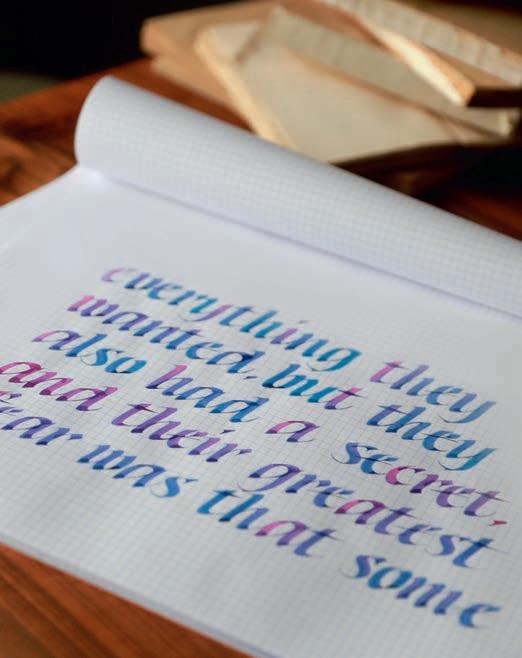 everything they
wanted, but they
also had a secret,
and their greatest
fear was that some